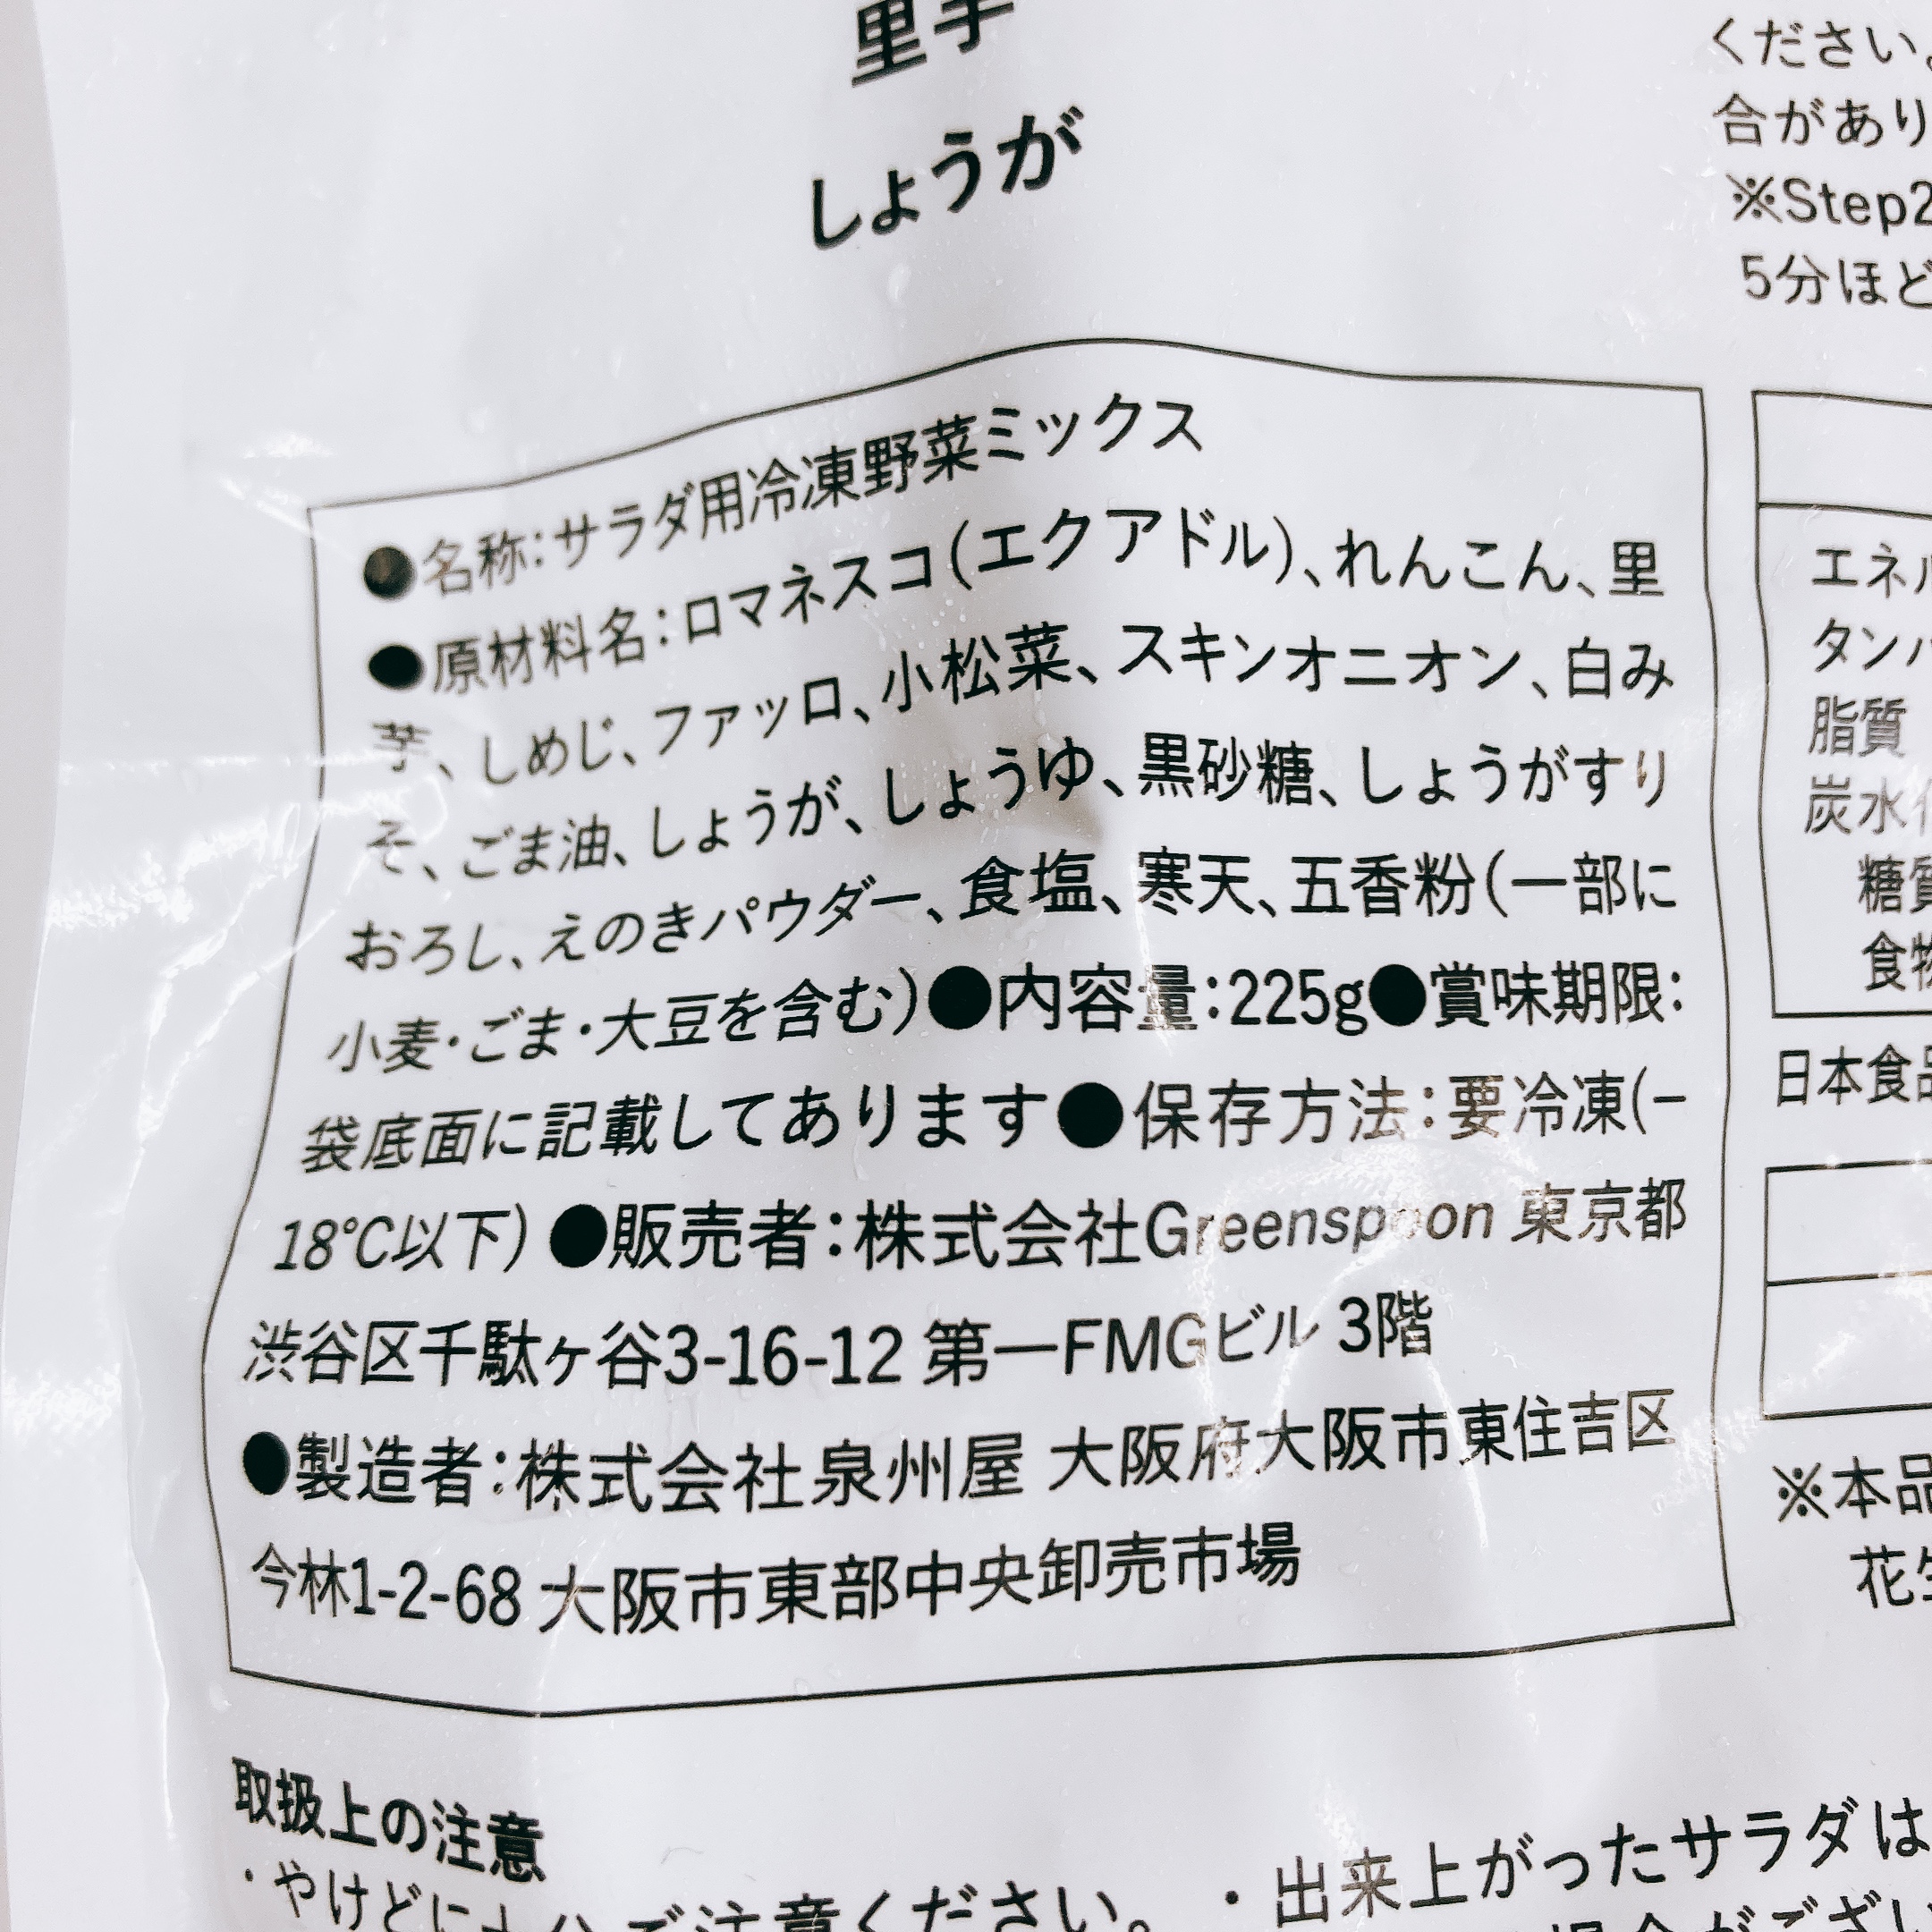 里芋
しょうが
ください。
合があり
※Step2
5分ほど
●名称：サラダ用冷凍野菜ミックス
●原材料名：ロマネスコ（エクアドル）、れんこん、里
芋、しめじ、ファッロ、小松菜、スキンオニオン、白み
そ、ごま油、しょうが、しょうゆ、黒砂糖、しょうがすり
おろし、えのきパウダー、食塩、寒天、五香粉（一部に
小麦・ごま・大豆を含む）●内容量：225g●賞味期限：
袋底面に記載してあります●保存方法：要冷凍（−
18℃以下）●販売者：株式会社Greenspoon 東京都
渋谷区千駄ヶ谷3-16-12 第一FMGビル 3階
●製造者：株式会社泉州屋 大阪府大阪市東住吉区
今林1-2-68 大阪市東部中央卸売市場
エネル
タンパ
脂質
炭水化
糖質
食物
日本食品
※本品
花生
取扱上の注意
・やけどに十分ご注意ください。
・出来上がったサラダは
場合がござい